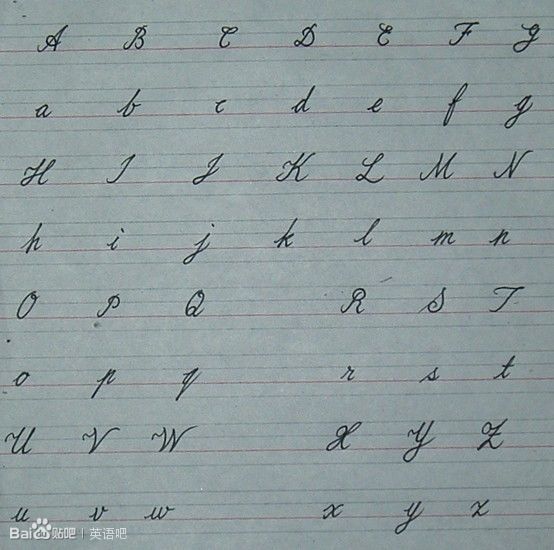 A B C D E F G
a b c d e f g
H I J K L M N
h i j k l m n
O P Q R S T
o p q r s t
U V W X Y Z
u v w x y z
Bai du 贴吧 | 英语吧